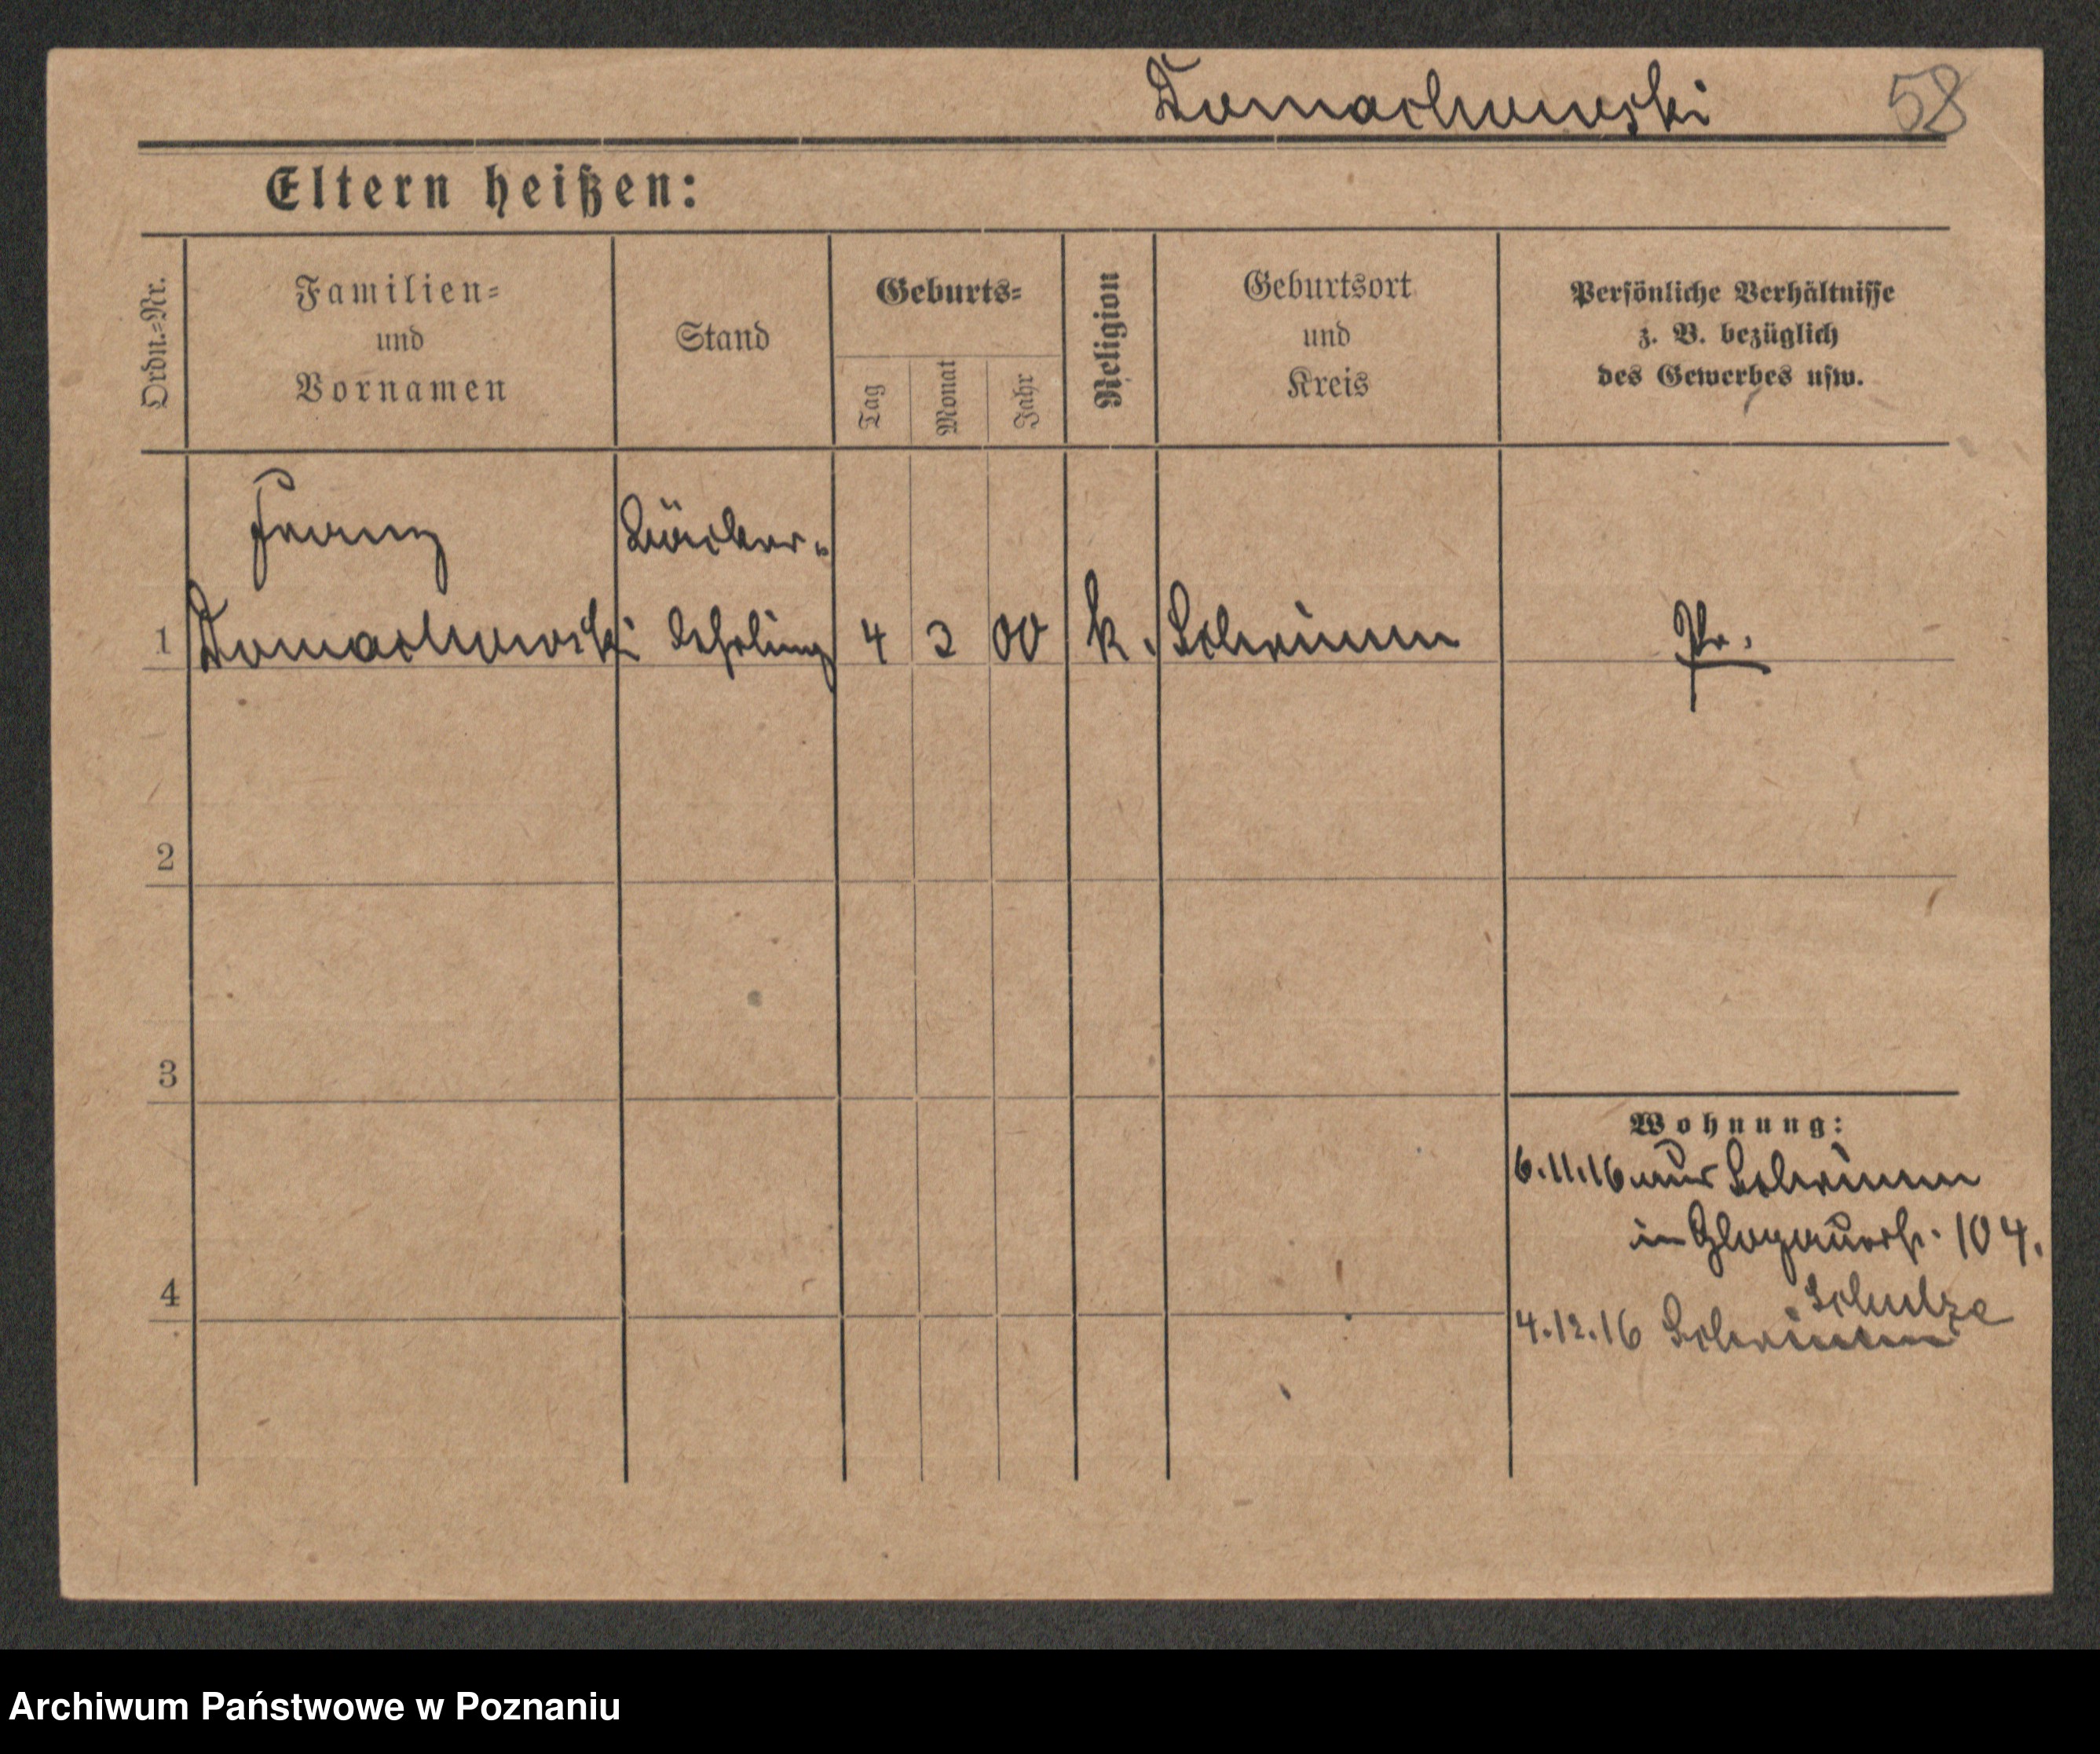 Domachowski 58
Eltern heißen:
Ordn.=Nr.
Familien=
und
Vornamen
Stand
Geburts=
Tag
Monat
Jahr
Religion
Geburtsort
und
Kreis
Persönliche Verhältnisse
z. B. bezüglich
des Gewerbes usw.
Franz Bäcker-
1 Domachowski Lehrling 4 3 00 k. Schrimm Pr.
2
3
Wohnung:
6.11.16 aus Schrimm
in Glogauerstr. 104.
Schulze
4
4.12.16 Schrimm
Archiwum Państwowe w Poznaniu